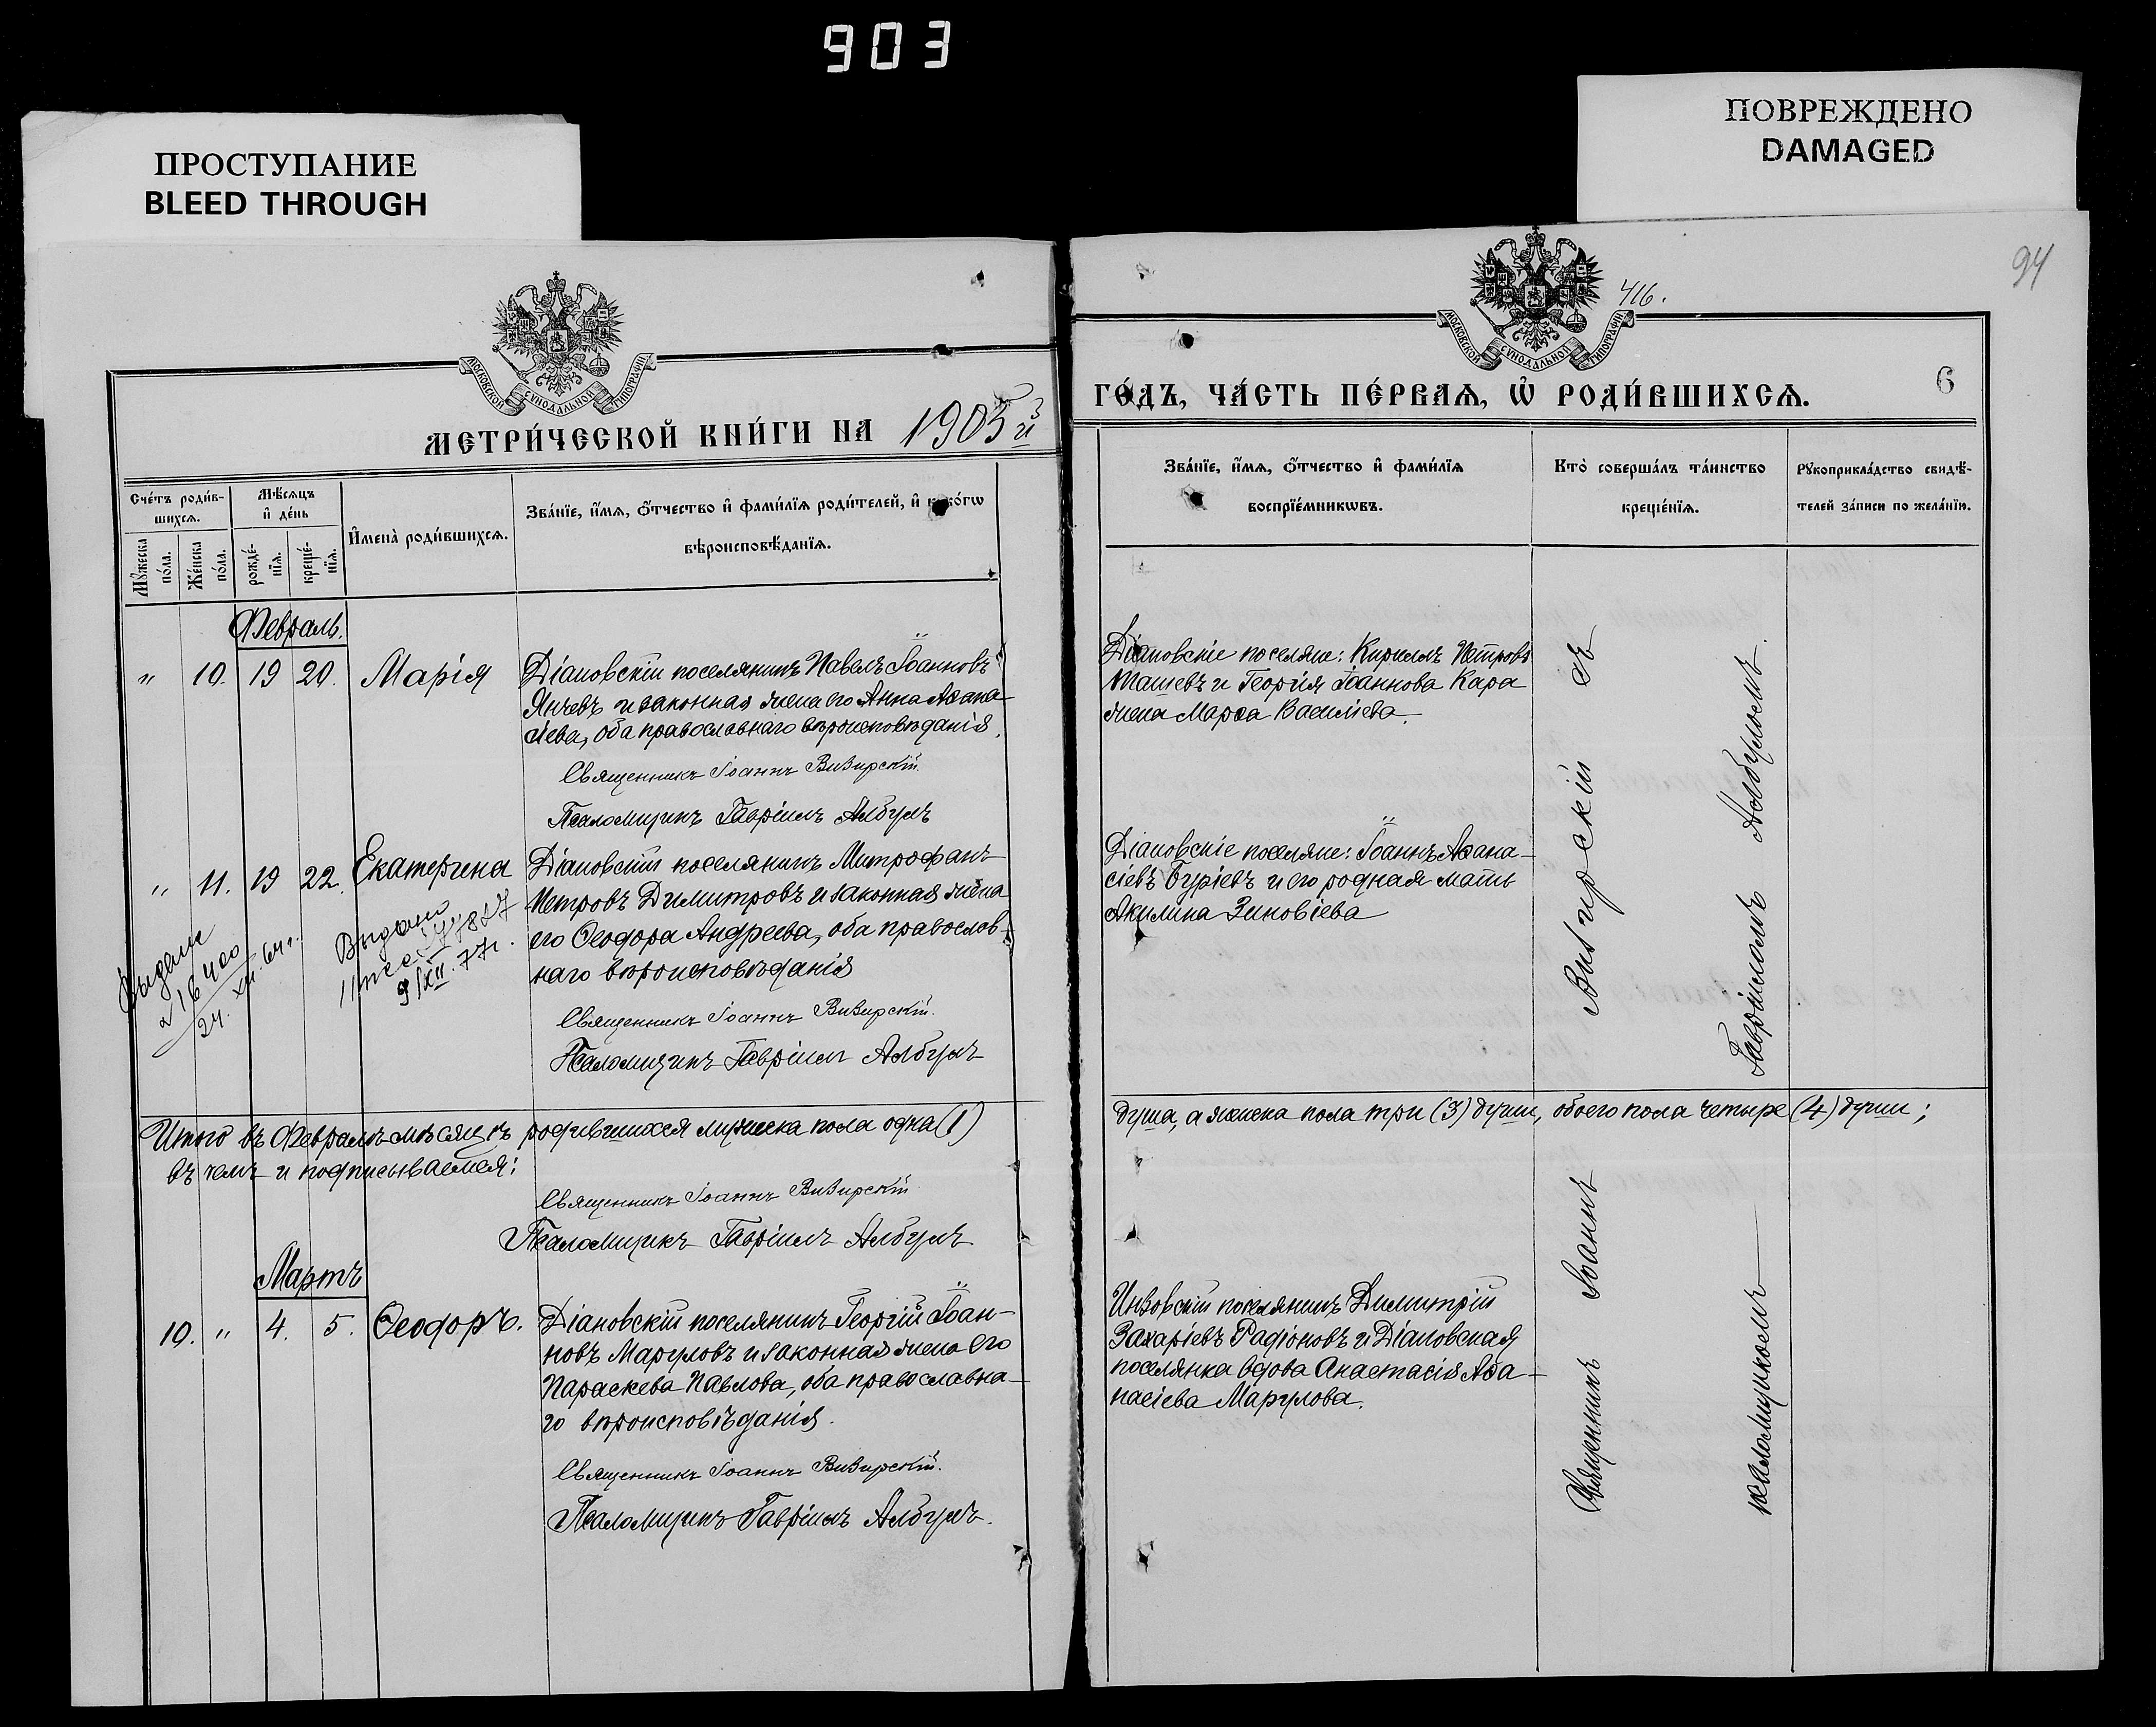 903
ПРОСТУПАНИЕ
BLEED THROUGH
ПОВРЕЖДЕНО
DAMAGED
94
416.
6
МОСКОВСКОЙ СѴНОДАЛЬНОЙ ТИПОГРАФІИ
МОСКОВСКОЙ СѴНОДАЛЬНОЙ ТИПОГРАФІИ
МЕТРИ́ЧЕСКОЙ КНИ́ГИ НА 1903 й
ГО́ДЪ, ЧА́СТЬ ПЕ́РВАѦ, Ѡ҆ РОДИ́ВШИХСѦ.
Сче́тъ роди́в-
шихсѧ.
Мꙋ́жеска по́ла.
Же́нска по́ла.
Мѣ́сѧцъ
и҆ де́нь
рожде́-
нїѧ.
креще́-
нїѧ.
И҆мена̀ роди́вшихсѧ.
Зва́нїе, и҆́мѧ, ѻ҆́тчество и҆ фами́лїѧ роди́телей, и҆ како́гѡ
вѣроисповѣ́данїѧ.
Зва́нїе, и҆́мѧ, ѻ҆́тчество и҆ фами́лїѧ
воспрїе́мникѡвъ.
Кто̀ соверша́лъ та́инство
креще́нїѧ.
Рꙋкоприкла́дство свидѣ́-
телей за́писи по жела́нїю.
Февраль.
" 10. 19 20. Марія
Діановскій поселянинъ Павелъ Іоанновъ
Янчевъ и законная жена его Анна Аѳана-
сіева, оба православнаго вѣроисповѣданія.
Священникъ Іоаннъ Визирскій.
Псаломщикъ Гавріилъ Албулъ
Діановскіе поселяне: Кириллъ Петровъ
Ташевъ и Георгія Іоаннова Кара
жена Марѳа Василіева.
" 11. 19 22. Екатерина
Діановскій поселянинъ Митрофанъ
Петровъ Димитровъ и законная жена
его Ѳеодора Андреева, оба православ-
наго вѣроисповѣданія
Священникъ Іоаннъ Визирскій.
Псаломщикъ Гавріилъ Албулъ
Діановскіе поселяне: Іоаннъ Аѳана-
сіевъ Буріевъ и его родная мать
Акилина Зиновіева
24. XII. 64 г.
Выдано
9/XII. 77г.
Итого въ Февралѣ мѣсяцѣ родившихся мужеска пола одна (1)
душа, а женска пола три (3) души, обоего пола четыре (4) души;
въ чемъ и подписываемся:
Священникъ Іоаннъ Визирскій
Псаломщикъ Гавріилъ Албулъ
Мартъ
10. " 4. 5. Ѳеодоръ.
Діановскій поселянинъ Георгій Іоан-
новъ Маруловъ и законная жена его
Параскева Павлова, оба православна-
го вѣроисповѣданія.
Священникъ Іоаннъ Визирскій.
Псаломщикъ Гавріилъ Албулъ.
Инзовскій поселянинъ Димитрій
Захаріевъ Радіоновъ и Діановская
поселянка вдова Анастасія Аѳа-
насіева Марулова.
Священникъ Іоаннъ Визирскій съ
псаломщикомъ Гавріиломъ Албуломъ.